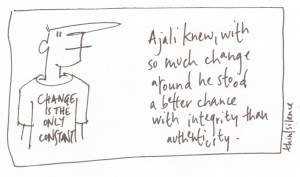 CHANGE
IS THE
ONLY
CONSTANT
Ajali knew, with
so much change
around he stood
a better chance
with integrity than
authenticity.
think|silence